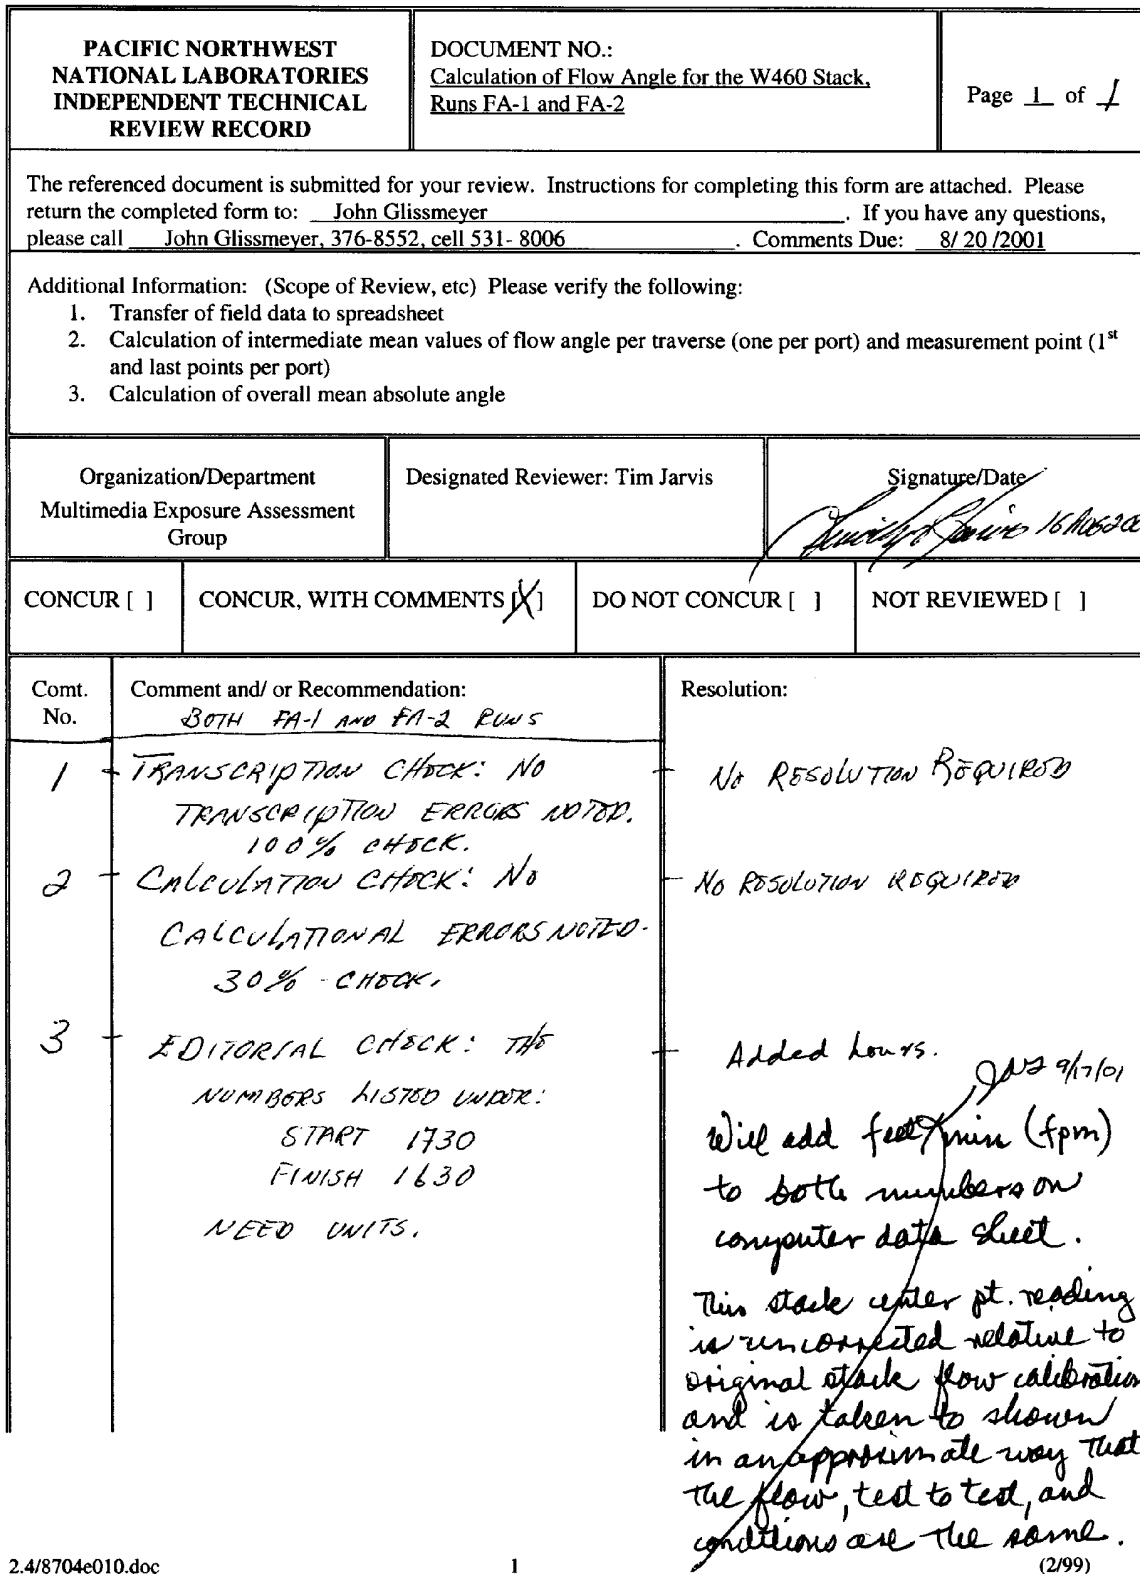 PACIFIC NORTHWEST
NATIONAL LABORATORIES
INDEPENDENT TECHNICAL
REVIEW RECORD
DOCUMENT NO.:
Calculation of Flow Angle for the W460 Stack,
Runs FA-1 and FA-2
Page 1 of 1
The referenced document is submitted for your review. Instructions for completing this form are attached. Please
return the completed form to: John Glissmeyer. If you have any questions,
please call John Glissmeyer, 376-8552, cell 531- 8006. Comments Due: 8/ 20 /2001
Additional Information: (Scope of Review, etc) Please verify the following:
1. Transfer of field data to spreadsheet
2. Calculation of intermediate mean values of flow angle per traverse (one per port) and measurement point (1st
and last points per port)
3. Calculation of overall mean absolute angle
Organization/Department
Multimedia Exposure Assessment
Group
Designated Reviewer: Tim Jarvis
Signature/Date
16 AUG 200
CONCUR [ ]
CONCUR, WITH COMMENTS [X]
DO NOT CONCUR [ ]
NOT REVIEWED [ ]
Comt.
No.
Comment and/ or Recommendation:
BOTH FA-1 AND FA-2 RUNS
Resolution:
1 TRANSCRIPTION CHECK: NO
TRANSCRIPTION ERRORS NOTED.
100% CHECK.
NO RESOLUTION REQUIRED
2 CALCULATION CHECK: NO
CALCULATIONAL ERRORS NOTED.
30% - CHECK.
NO RESOLUTION REQUIRED
3 EDITORIAL CHECK: THE
NUMBERS LISTED UNDER:
START 1730
FINISH 1630
NEED UNITS.
Added hours.
9/17/01
Will add feet/min (fpm)
to both numbers on
computer data sheet.
This stack center pt. reading
is uncorrected relative to
original stack flow calibration
and is taken to shown
in an approximate way that
the flow, test to test, and
conditions are the same.
2.4/8704e010.doc
1
(2/99)